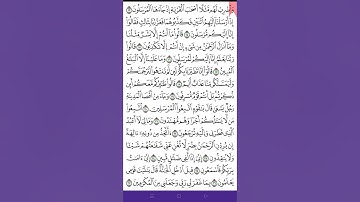 وَٱضْرِبْ لَهُم مَّثَلًا أَصْحَـٰبَ ٱلْقَرْيَةِ إِذْ جَآءَهَا ٱلْمُرْسَلُونَ ١٣
إِذْ أَرْسَلْنَآ إِلَيْهِمُ ٱثْنَيْنِ فَكَذَّبُوهُمَا فَعَزَّزْنَا بِثَالِثٍ فَقَالُوٓا۟
إِنَّآ إِلَيْكُم مُّرْسَلُونَ ١٤ قَالُوا۟ مَآ أَنتُمْ إِلَّا بَشَرٌ مِّثْلُنَا
وَمَآ أَنزَلَ ٱلرَّحْمَـٰنُ مِن شَىْءٍ إِنْ أَنتُمْ إِلَّا تَكْذِبُونَ ١٥
قَالُوا۟ رَبُّنَا يَعْلَمُ إِنَّآ إِلَيْكُمْ لَمُرْسَلُونَ ١٦ وَمَا عَلَيْنَآ إِلَّا ٱلْبَلَـٰغُ
ٱلْمُبِينُ ١٧ قَالُوٓا۟ إِنَّا تَطَيَّرْنَا بِكُمْ لَئِن لَّمْ تَنتَهُوا۟ لَنَرْجُمَنَّكُمْ
وَلَيَمَسَّنَّكُم مِّنَّا عَذَابٌ أَلِيمٌ ١٨ قَالُوا۟ طَـٰٓئِرُكُم مَّعَكُمْ أَئِن
ذُكِّرْتُم بَلْ أَنتُمْ قَوْمٌ مُّسْرِفُونَ ١٩ وَجَآءَ مِنْ أَقْصَا ٱلْمَدِينَةِ
رَجُلٌ يَسْعَىٰ قَالَ يَـٰقَوْمِ ٱتَّبِعُوا۟ ٱلْمُرْسَلِينَ ٢٠ ٱتَّبِعُوا۟
مَن لَّا يَسْـَٔلُكُمْ أَجْرًا وَهُم مُّهْتَدُونَ ٢١ وَمَا لِىَ لَآ أَعْبُدُ
ٱلَّذِى فَطَرَنِى وَإِلَيْهِ تُرْجَعُونَ ٢٢ ءَأَتَّخِذُ مِن دُونِهِۦٓ ءَالِهَةً
إِن يُرِدْنِ ٱلرَّحْمَـٰنُ بِضُرٍّ لَّا تُغْنِ عَنِّى شَفَـٰعَتُهُمْ شَيْـًٔا
وَلَا يُنقِذُونِ ٢٣ إِنِّىٓ إِذًا لَّفِى ضَلَـٰلٍ مُّبِينٍ ٢٤ إِنِّىٓ ءَامَنتُ
بِرَبِّكُمْ فَٱسْمَعُونِ ٢٥ قِيلَ ٱدْخُلِ ٱلْجَنَّةَ قَالَ يَـٰلَيْتَ قَوْمِى
يَعْلَمُونَ ٢٦ بِمَا غَفَرَ لِى رَبِّى وَجَعَلَنِى مِنَ ٱلْمُكْرَمِينَ ٢٧